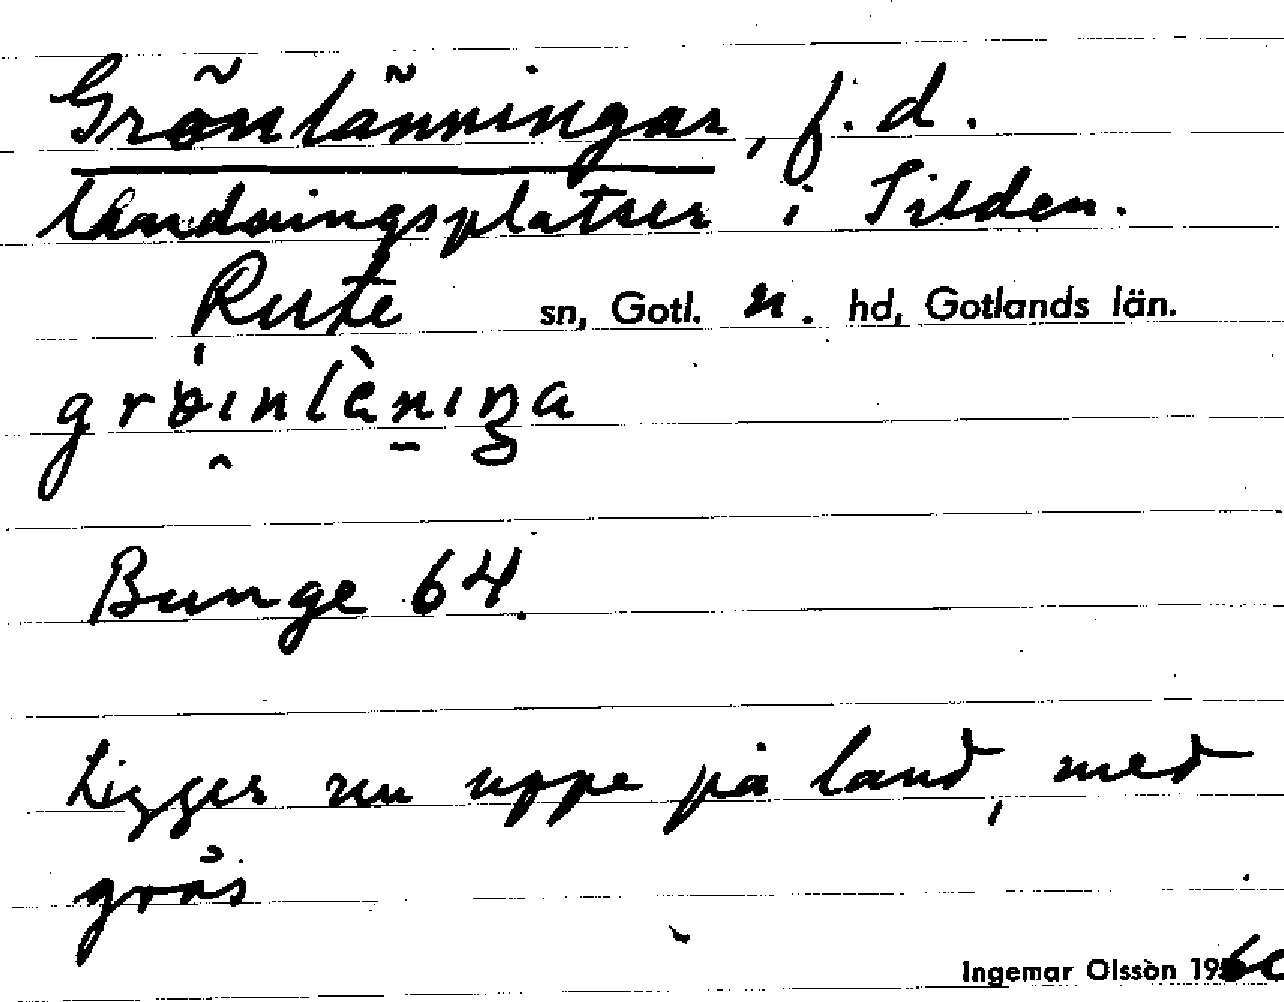 Grönlänningar, f.d.
landningsplatser i Silden.
Rute sn, Gotl. n. hd, Gotlands län.
grøinlèniŋa
Bunge 64.
Ligger nu uppe på land, med
gräs
Ingemar Olsson 1960